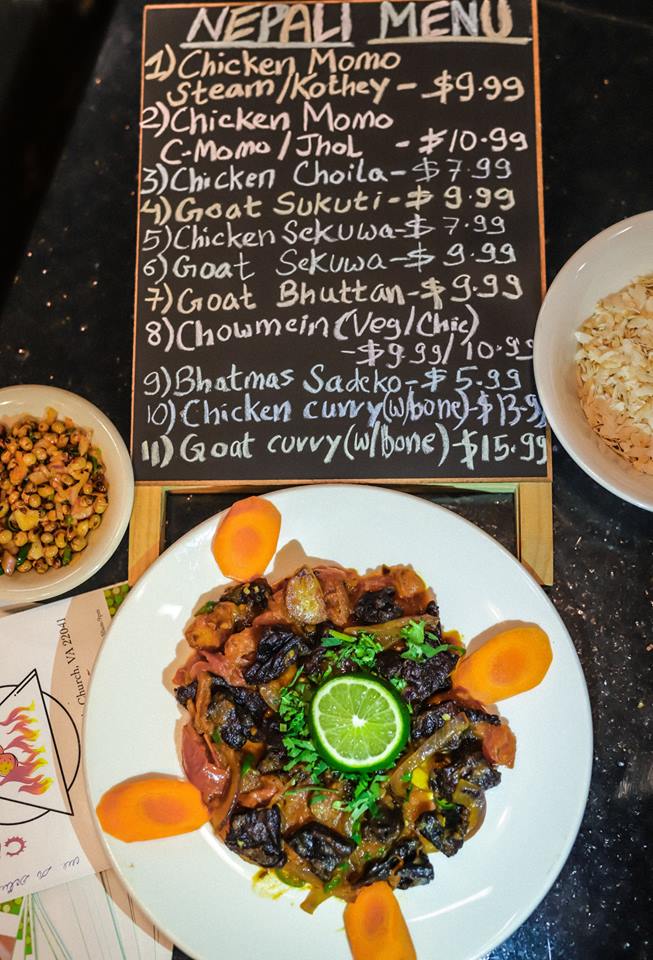 NEPALI MENU
1) Chicken Momo
Steam/Kothey - $9.99
2) Chicken Momo
C-Momo/Jhol - $10.99
3) Chicken Choila - $7.99
4) Goat Sukuti - $9.99
5) Chicken Sekuwa - $7.99
6) Goat Sekuwa - $9.99
7) Goat Bhuttan - $9.99
8) Chowmein (Veg/Chic)
- $9.99/10.99
9) Bhatmas Sadeko - $5.99
10) Chicken curry (w/bone) - $13.9
11) Goat curry (w/bone) - $15.99
Church, VA 22041